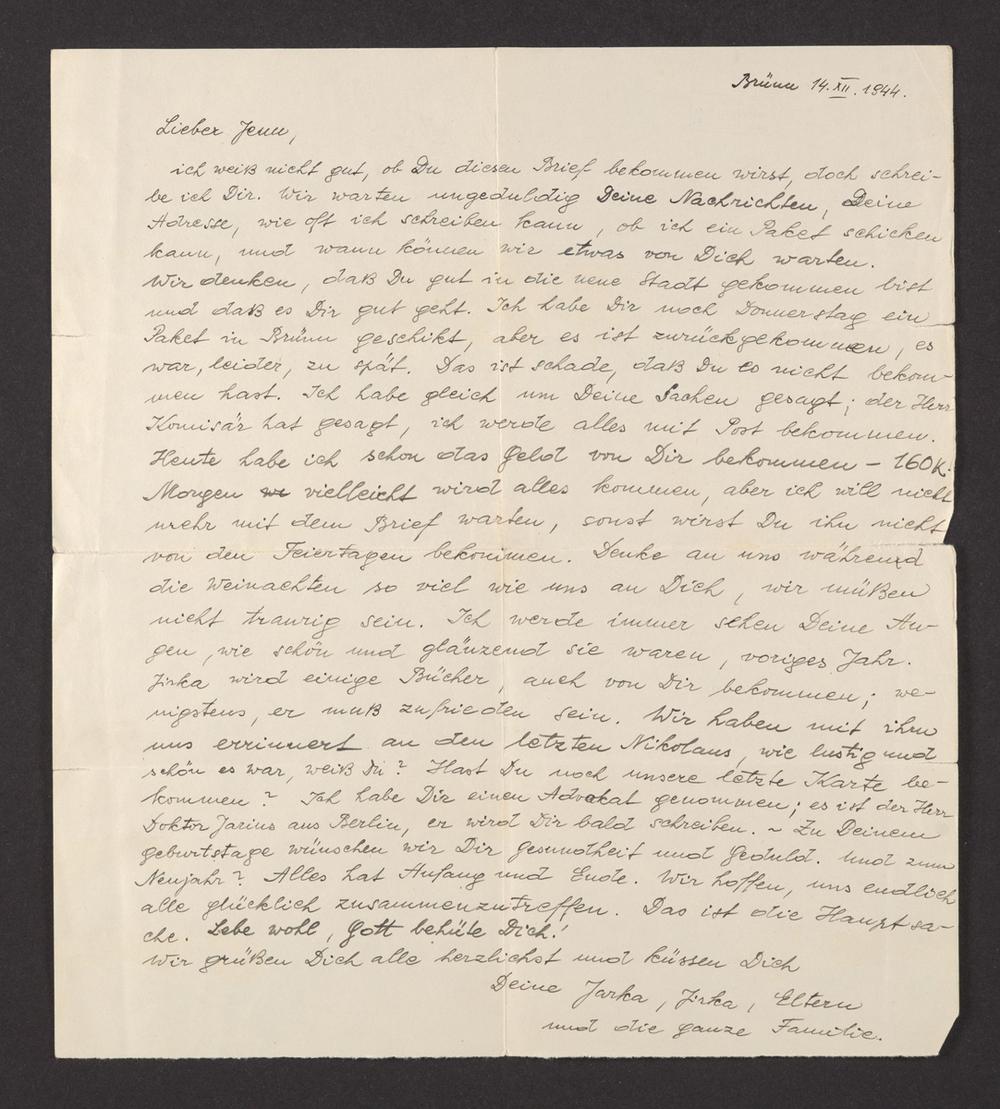 Brünn 14.XII.1944.
Lieber Jenu,
ich weiß nicht gut, ob Du diesen Brief bekommen wirst, doch schrei-
be ich Dir. Wir warten ungeduldig Deine Nachrichten, Deine
Adresse, wie oft ich schreiben kann, ob ich ein Paket schicken
kann, und wann können wir etwas von Dich warten.
Wir denken, daß Du gut in die neue Stadt gekommen bist
und daß es Dir gut geht. Ich habe Dir noch Donnerstag ein
Paket in Brünn geschikt, aber es ist zurückgekommen, es
war, leider, zu spät. Das ist schade, daß Du es nicht bekom-
men hast. Ich habe gleich um Deine Sachen gesagt; der Herr
Komisär hat gesagt, ich werde alles mit Post bekommen.
Heute habe ich schon das Geld von Dir bekommen – 160 K.
Morgen vielleicht wird alles kommen, aber ich will nicht
mehr mit dem Brief warten, sonst wirst Du ihn nicht
von den Feiertagen bekommen. Denke an uns während
die Weinachten so viel wie uns an Dich, wir müßen
nicht traurig sein. Ich werde immer sehen Deine Au-
gen, wie schön und glänzend sie waren, voriges Jahr.
Jirka wird einige Bücher, auch von Dir bekommen; we-
nigstens, er muß zufrieden sein. Wir haben mit ihm
uns errinnert an den letzten Nikolaus, wie lustig und
schön es war, weiß Du? Hast Du noch unsere letzte Karte be-
kommen? Ich habe Dir einen Advokat genommen; es ist der Herr
Doktor Jarius aus Berlin, er wird Dir bald schreiben. – Zu Deinem
Geburtstage wünschen wir Dir Gesundheit und Geduld. Und zum
Neujahr? Alles hat Anfang und Ende. Wir hoffen, uns endlich
alle glücklich zusammenzutreffen. Das ist die Hauptsa-
che. Lebe wohl, Gott behüte Dich!
Wir grüßen Dich alle herzlichst und küssen Dich
Deine Jarka, Jirka, Eltern
und die ganze Familie.